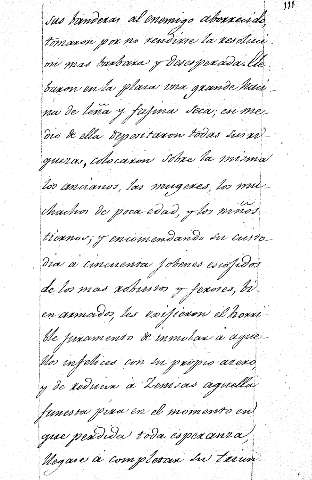 111
sus banderas al enemigo aborrecido,
tomaron por no rendirse la resoluci-
on mas barbara y desesperada. Ele-
baron en la plaza una grande haci-
na de leña y fagina seca; en me-
dio de ella depositaron todas sus ri-
quezas, colocaron sobre la misma
los ancianos, las mugeres, los mu-
chachos de poca edad, y los niños
tiernos; y encomendando su custo-
dia á cincuenta jobenes escojidos
de los mas robustos y feroces, bi-
en armados, les exijieron el horri-
ble juramento de inmolar á aque-
llos infelices con su propio acero,
y de reducir á cenizas aquella
funesta pira en el momento en
que perdida toda esperanza,
llegase á completar su triun-